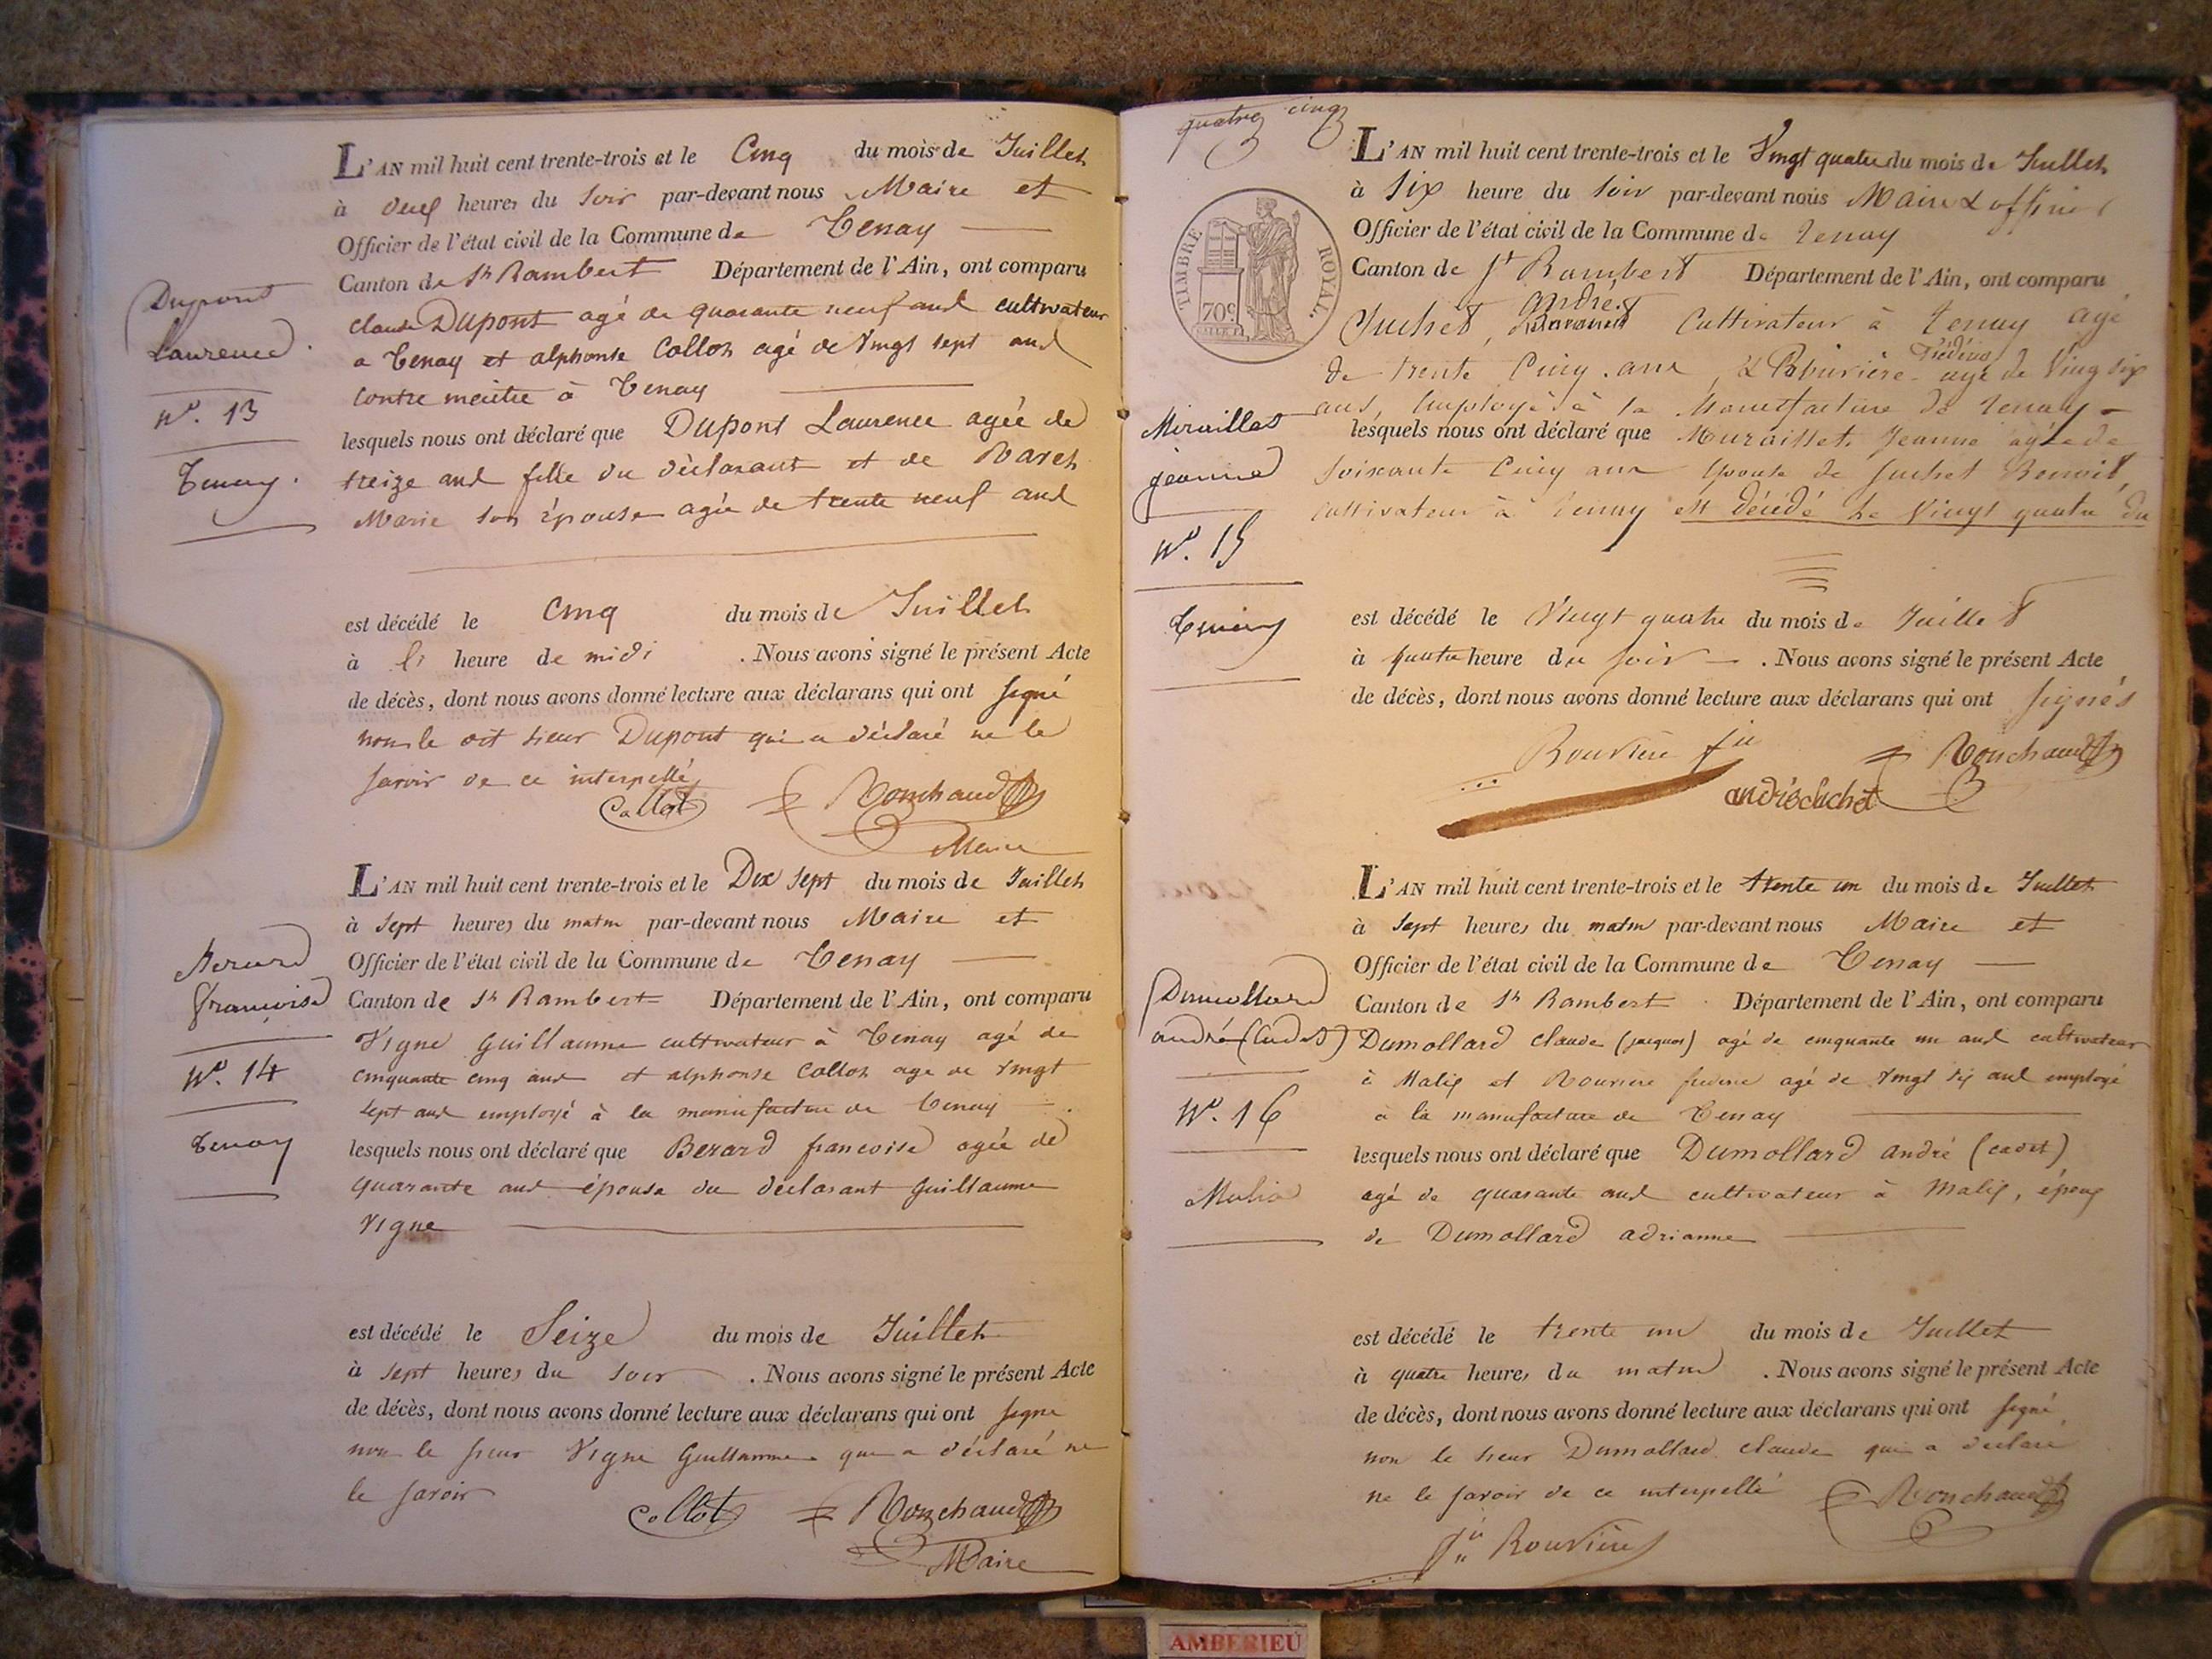 L'AN mil huit cent trente-trois et le Cinq du mois de Juillet
à deux heures du soir par-devant nous Maire et
Officier de l'état civil de la Commune de Tenay
Canton de St Rambert Département de l'Ain, ont comparu
claude Dupont agé de quarante neuf ans cultivateur
a Tenay et alphonse Collot agé de vingt sept ans
contre meitre à Tenay
lesquels nous ont déclaré que Dupont Laurence agée de
treize ans fille du déclarant et de
Marie son épouse agée de trente neuf ans
Dupont
Laurence
No. 13
Tenay.
est décédé le Cinq du mois de Juillet
à heure de midi . Nous avons signé le présent Acte
de décès, dont nous avons donné lecture aux déclarans qui ont signé
non le dit sieur Dupont qui a déclaré ne le
savoir de ce interpellé
Collot Ronchaud
Maire
L'AN mil huit cent trente-trois et le Dix sept du mois de Juillet
à sept heures du matin par-devant nous Maire et
Officier de l'état civil de la Commune de Tenay
Canton de St Rambert Département de l'Ain, ont comparu
Vigne Guillaume cultivateur à Tenay agé de
cinquante cinq ans et alphonse Collot age de vingt
sept ans employé à la manufacture de Tenay
lesquels nous ont déclaré que Berard francoise agée de
quarante ans épouse du déclarant guillaume
Vigne
françoise
No. 14
Tenay
est décédé le Seize du mois de Juillet
à sept heures du soir . Nous avons signé le présent Acte
de décès, dont nous avons donné lecture aux déclarans qui ont signé
non le sieur Vigne Guillaume qui a déclaré ne
le savoir
Collot Ronchaud
Maire
quatre cinq
TIMBRE ROYAL.
70c
L'AN mil huit cent trente-trois et le Vingt quatre du mois de Juillet
à Six heure du soir par-devant nous Maire & officier
Officier de l'état civil de la Commune de Tenay
Canton de St Rambert Département de l'Ain, ont comparu
andré
Suchet, Cultivateur à Tenay agé
de trente Cinq ans, & agé de Vingt six
ans, employé à la Manufacture de Tenay
lesquels nous ont déclaré que Jeanne agée de
soixante Cinq ans épouse de Suchet Benoit,
cultivateur à Tenay est décédé le Vingt quatre du
jeanne
No. 15
Tenay
est décédé le Vingt quatre du mois de Juillet
à quatre heure du soir . Nous avons signé le présent Acte
de décès, dont nous avons donné lecture aux déclarans qui ont signés
Rouvière Ronchaud
andré suchet
L'AN mil huit cent trente-trois et le trente un du mois de Juillet
à sept heures du matin par-devant nous Maire et
Officier de l'état civil de la Commune de Tenay
Canton de St Rambert Département de l'Ain, ont comparu
Dumollard claude (jacques) agé de cinquante un ans cultivateur
à Malix et Rouviere agé de vingt six ans employé
à la manufacture de Tenay
lesquels nous ont déclaré que Dumollard andré (cadet)
agé de quarante ans cultivateur à Malix, époux
de Dumollard adrianne
Dumollard
andré (Cadet)
No. 16
est décédé le trente un du mois de Juillet
à quatre heures du matin . Nous avons signé le présent Acte
de décès, dont nous avons donné lecture aux déclarans qui ont signé
non le sieur Dumollard claude qui a déclaré
ne le savoir de ce interpellé Ronchaud
Rouvière
AMBERIEU